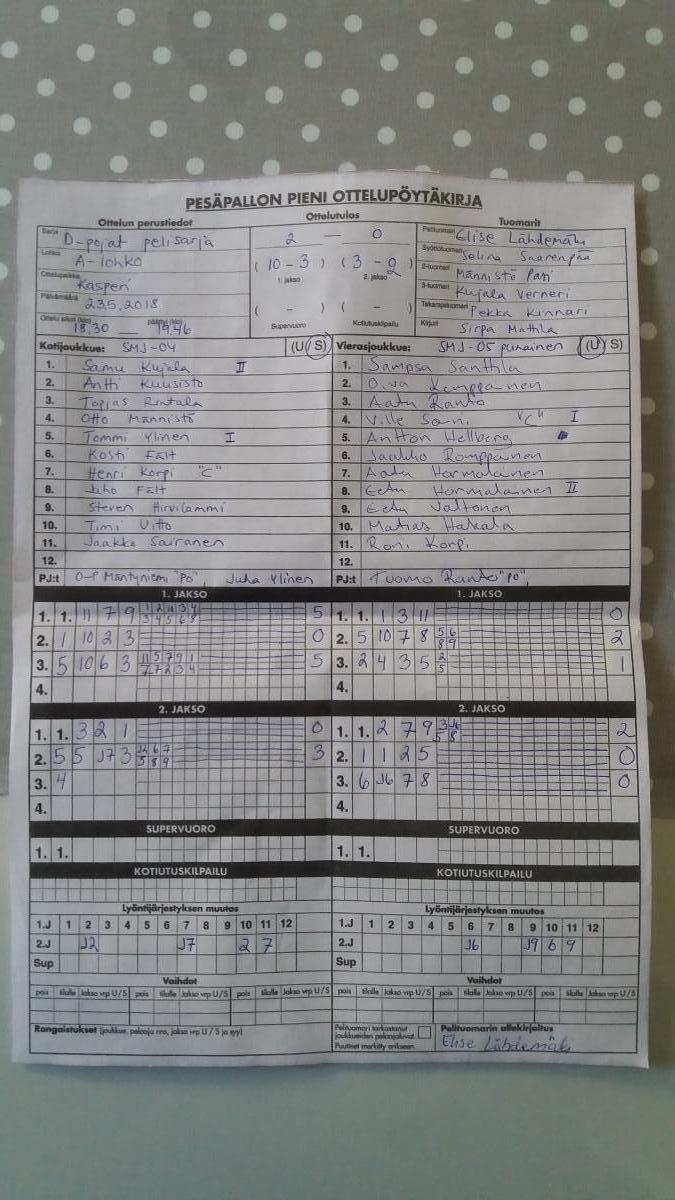 PESÄPALLON PIENI OTTELUPÖYTÄKIRJA
Ottelun perustiedot Ottelutulos Tuomarit
Sarja D-pojat pelisarja
2 — 0
Pelituomari Elise Lähdemäki
Lohko A-lohko
Syöttötuomari Selina Saarenpää
(10 - 3) (3 - 2)
1. jakso 2. jakso
2-tuomari Männistö Pasi
Ottelupaikka Kasperi
3-tuomari Kujala Verneri
Päivämäärä 23.5.2018
( - ) ( - )
Takarajatuomari Pekka Kinnari
Ottelu alkoi (klo) 18.30 — päättyi (klo) 19.46
Supervuoro Kotiutuskilpailu
Kirjuri Sirpa Mattila
Kotijoukkue: SMJ-04 (U/S)
1. Samu Kujala II
2. Antti Kuusisto
3. Topias Rintala
4. Otto Männistö
5. Tommi Ylinen I
6. Kosti Fält
7. Henri Korpi "C"
8. Juho Fält
9. Steven Hirvilammi
10. Timi Uitto
11. Jaakko Sairanen
12.
PJ:t O-P Mäntyniemi "PO", Juha Ylinen
Vierasjoukkue: SMJ-05 punainen (U/S)
1. Sampsa Santtila
2. Oiva Kemppainen
3. Aatu Ranto
4. Ville Sarni "C" I
5. Antton Hellberg
6. Jaakko Romppainen
7. Aatu Hormalainen
8. Eetu Hormalainen II
9. Eetu Valtonen
10. Matias Hakala
11. Roni Korpi
12.
PJ:t Tuomo Ranto "PO",
1. JAKSO
1. 1. 11 7 9 5
2. 1 10 2 3 0
3. 5 10 6 3 5
4.
1. JAKSO
1. 1. 1 3 11 0
2. 5 10 7 8 5 6 8 9 2
3. 2 4 3 5 2 5 1
4.
2. JAKSO
1. 1. 3 2 1 0
2. 5 5 J7 3 J2 6 7 5 8 9 3
3. 4
4.
2. JAKSO
1. 1. 2 7 9 3 J6 5 8 2
2. 1 1 2 5 0
3. 6 J6 7 8 0
4.
SUPERVUORO
1. 1.
SUPERVUORO
1. 1.
KOTIUTUSKILPAILU
KOTIUTUSKILPAILU
Lyöntijärjestyksen muutos
1.J 1 2 3 4 5 6 7 8 9 10 11 12
2.J J2 J7 2 7
Sup
Lyöntijärjestyksen muutos
1.J 1 2 3 4 5 6 7 8 9 10 11 12
2.J J6 J9 6 9
Sup
Vaihdot
pois tilalle Jakso vrp U/S pois tilalle Jakso vrp U/S pois tilalle Jakso vrp U/S
Vaihdot
pois tilalle Jakso vrp U/S pois tilalle Jakso vrp U/S pois tilalle Jakso vrp U/S
Rangaistukset (joukkue, pelaaja nro, jakso vrp U / S ja syy)
Pelituomari tarkastanut
joukkueiden pelaajaluvat.
Puutteet merkitty erikseen.
Pelituomarin allekirjoitus
Elise Lähdemäki